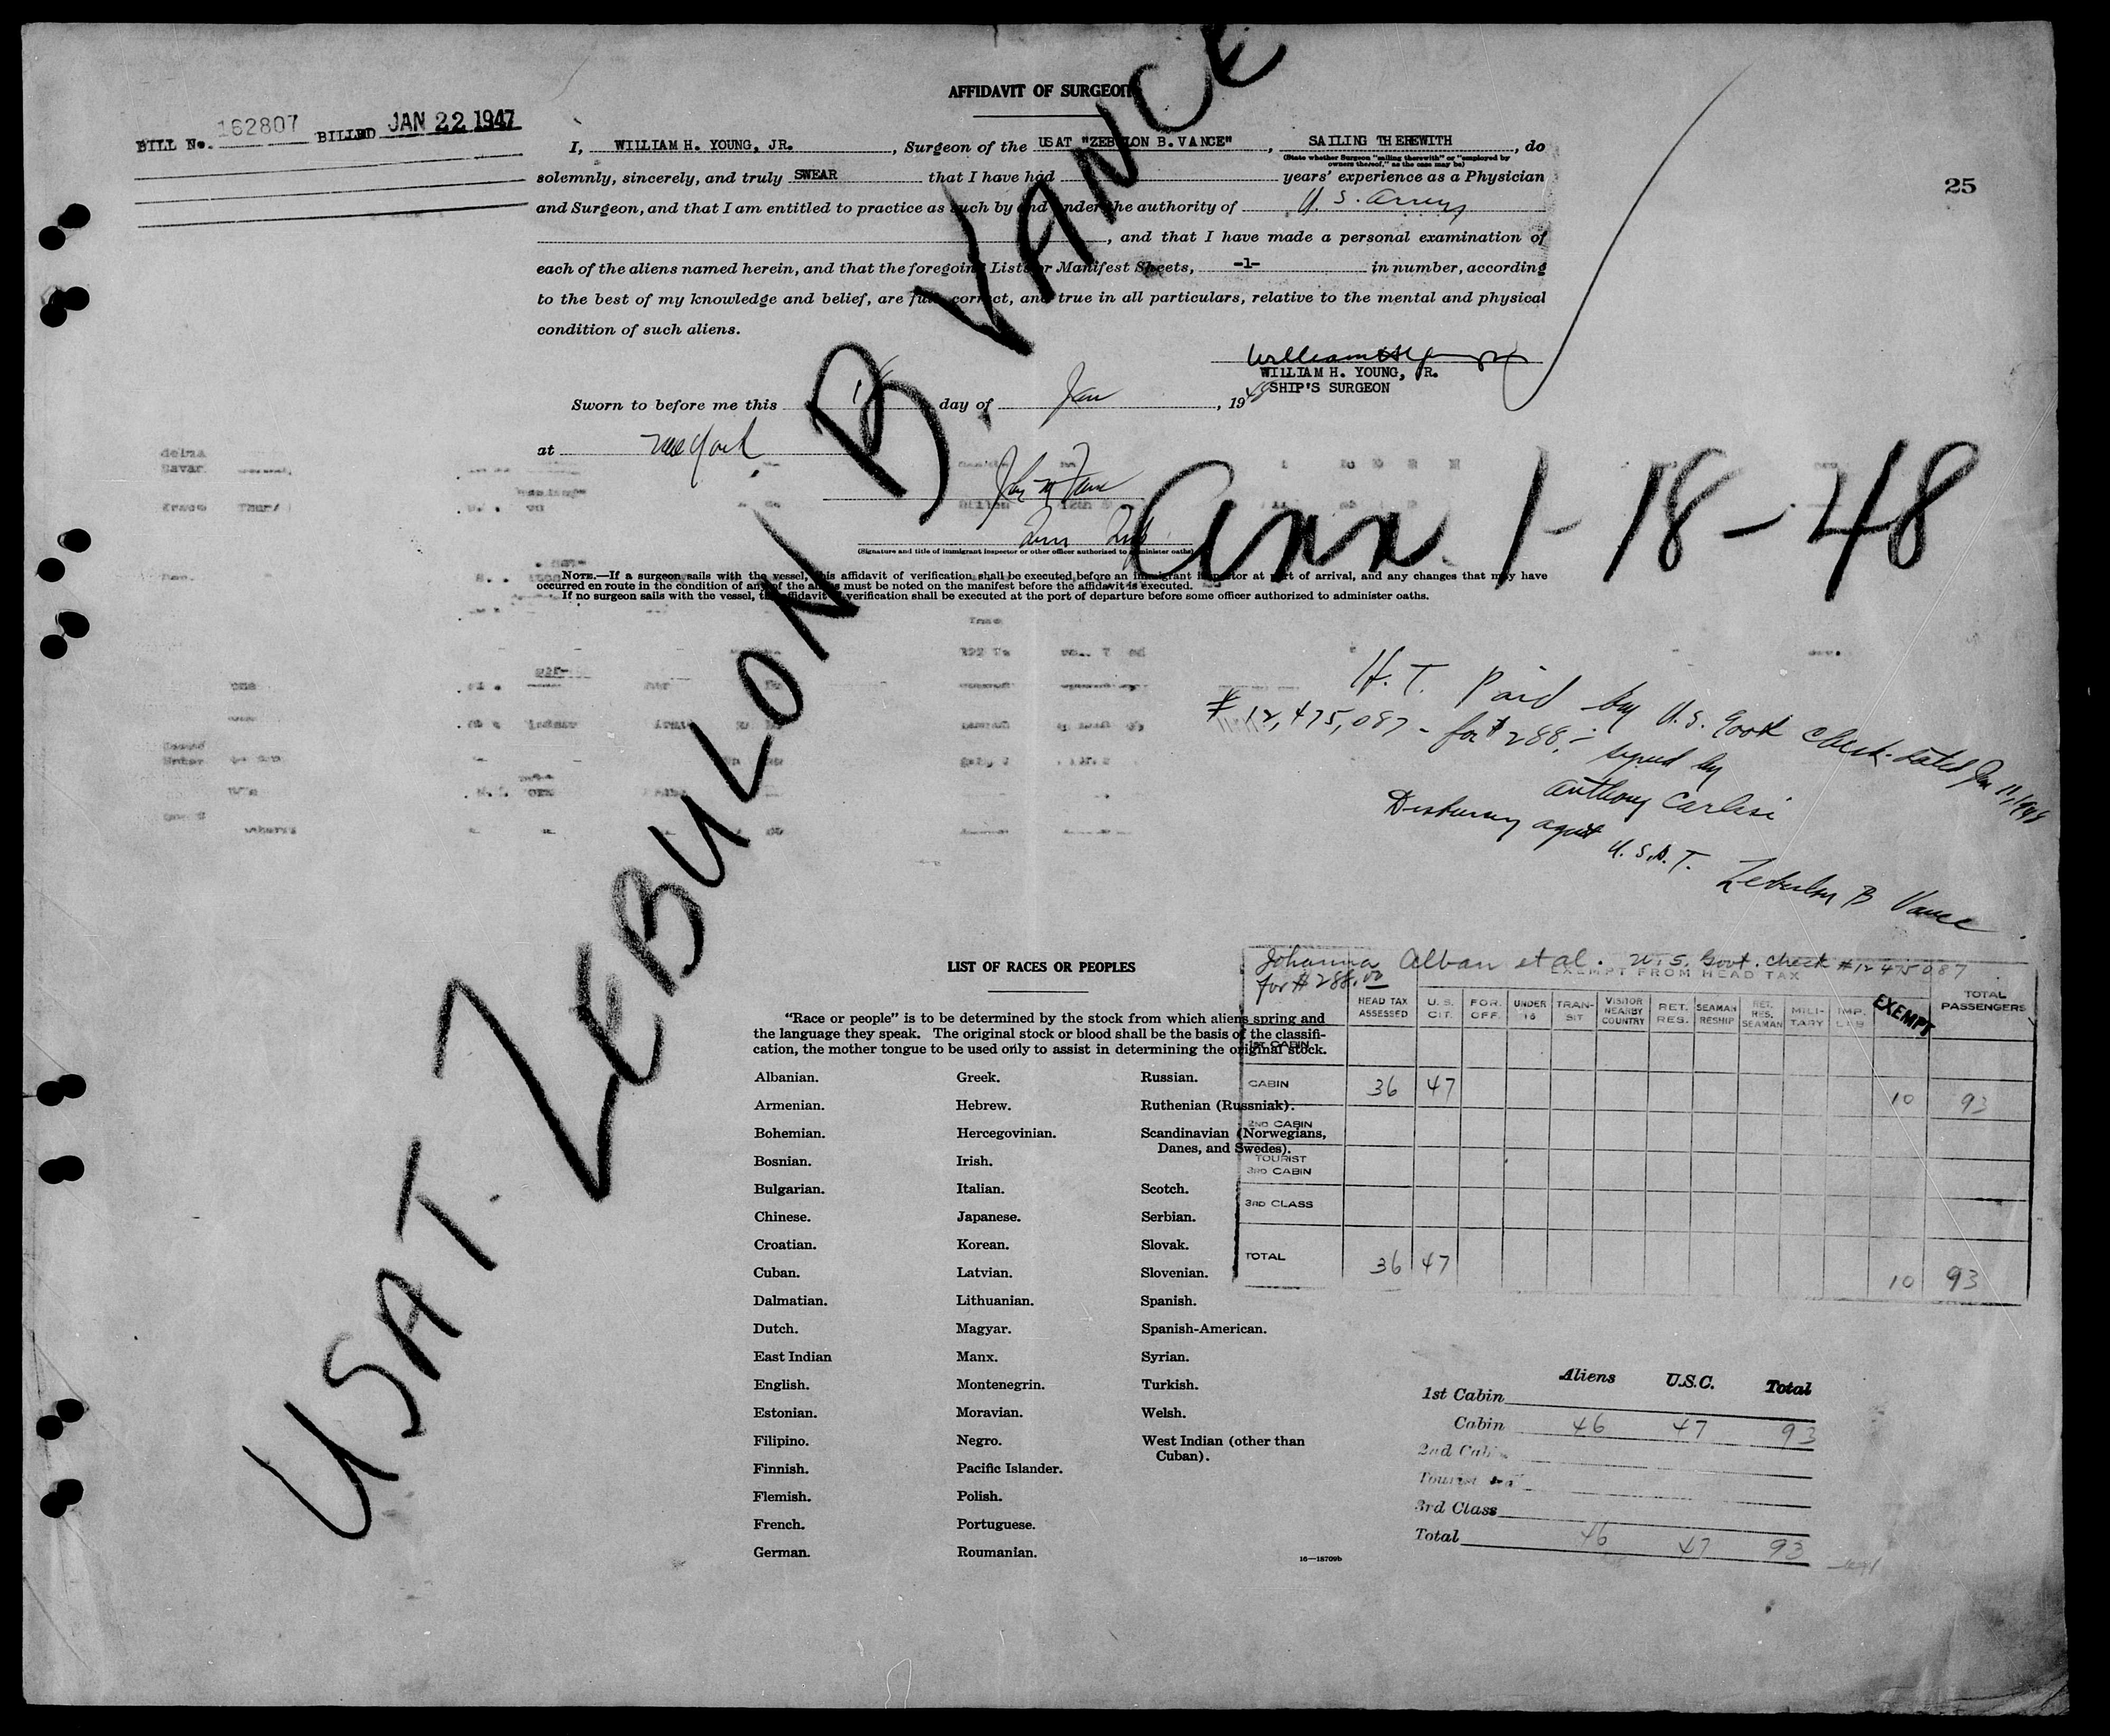 AFFIDAVIT OF SURGEON
BILL No. 162807 BILLED JAN 22 1947
I, WILLIAM H. YOUNG, JR. , Surgeon of the USAT "ZEBULON B. VANCE" , SAILING THEREWITH , do
(State whether Surgeon "sailing therewith" or "employed by owners thereof," as the case may be)
solemnly, sincerely, and truly SWEAR that I have had years' experience as a Physician
25
and Surgeon, and that I am entitled to practice as such by and under the authority of U. S. Army
, and that I have made a personal examination of
each of the aliens named herein, and that the foregoing Lists or Manifest Sheets, -1- in number, according
to the best of my knowledge and belief, are full, correct, and true in all particulars, relative to the mental and physical
condition of such aliens.
WILLIAM H. YOUNG, JR.
SHIP'S SURGEON
Sworn to before me this 18 day of Jan , 1948
at New York
(Signature and title of immigrant inspector or other officer authorized to administer oaths)
NOTE.—If a surgeon sails with the vessel, this affidavit of verification shall be executed before an immigrant inspector at port of arrival, and any changes that may have
occurred en route in the condition of any of the aliens must be noted on the manifest before the affidavit is executed.
If no surgeon sails with the vessel, the affidavit of verification shall be executed at the port of departure before some officer authorized to administer oaths.
USAT. ZEBULON B. VANCE
Arr. 1-18-48
H. T. Paid by U. S. Govt Check dated Jan 11, 1948
# 12,475,087 - for $288.- signed by
Anthony Carlisi
Disbursing agent U. S. A. T. Zebulon B Vance
LIST OF RACES OR PEOPLES
"Race or people" is to be determined by the stock from which aliens spring and
the language they speak. The original stock or blood shall be the basis of the classifi-
cation, the mother tongue to be used only to assist in determining the original stock.
Albanian. Greek. Russian.
Armenian. Hebrew. Ruthenian (Russniak).
Bohemian. Hercegovinian. Scandinavian (Norwegians,
Danes, and Swedes).
Bosnian. Irish.
Bulgarian. Italian. Scotch.
Chinese. Japanese. Serbian.
Croatian. Korean. Slovak.
Cuban. Latvian. Slovenian.
Dalmatian. Lithuanian. Spanish.
Dutch. Magyar. Spanish-American.
East Indian Manx. Syrian.
English. Montenegrin. Turkish.
Estonian. Moravian. Welsh.
Filipino. Negro. West Indian (other than
Cuban).
Finnish. Pacific Islander.
Flemish. Polish.
French. Portuguese.
German. Roumanian.
16—18709b
Johanna Alban et al. U. S. Govt. check # 12475087
for $288.00
EXEMPT FROM HEAD TAX
HEAD TAX ASSESSED U. S. CIT. FOR. OFF. UNDER 16 TRAN-SIT VISITOR NEARBY COUNTRY RET. RES. SEAMAN RESHIP RET. RES. SEAMAN MILI-TARY IMP. LAB EXEMPT TOTAL PASSENGERS
1ST CABIN
CABIN 36 47 10 93
2ND CABIN
TOURIST
3RD CABIN
3RD CLASS
TOTAL 36 47 10 93
Aliens U.S.C. Total
1st Cabin
Cabin 46 47 93
2nd Cab
Tourist
3rd Class
Total 46 47 93